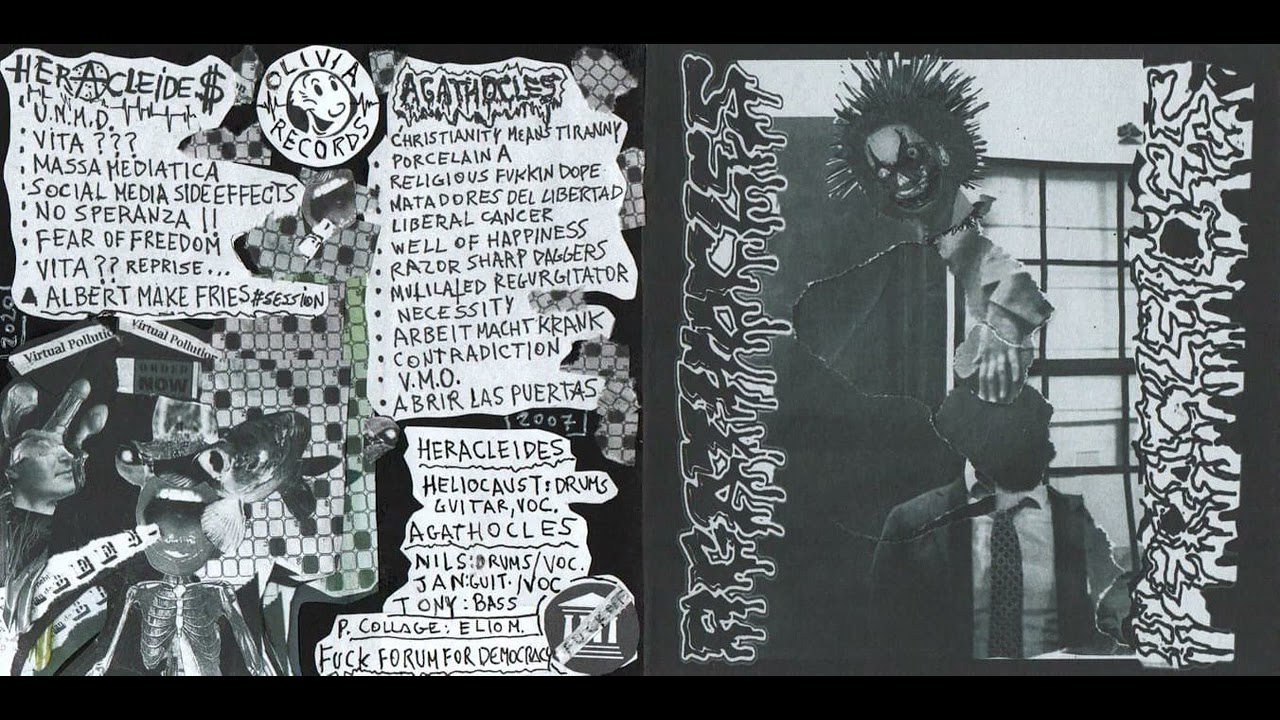 HERACLEIDE$
U.N.M.D.
VITA ???
MASSA MEDIATICA
SOCIAL MEDIA SIDE EFFECTS
NO SPERANZA !!
FEAR OF FREEDOM
VITA ?? REPRISE...
ALBERT MAKE FRIES #SESSION
2020
OLIVIA
RECORDS
AGATHOCLES
CHRISTIANITY MEANS TIRANNY
PORCELAIN A
RELIGIOUS FUKKIN DOPE
MATADORES DEL LIBERTAD
LIBERAL CANCER
WELL OF HAPPINESS
RAZOR SHARP DAGGERS
MULILALED REGURGITATOR
NECESSITY
ARBEIT MACHT KRANK
CONTRADICTION
V.M.O.
ABRIR LAS PUERTAS
2007
Virtual Pollutio
Virtual Pollution
ORDER
NOW
HERACLEIDES
HELIOCAUST: DRUMS
GUITAR, VOC.
AGATHOCLES
NILS: DRUMS/VOC.
JAN: GUIT./VOC
TONY: BASS
P. COLLAGE: ELIO M.
FUCK FORUM FOR DEMOCRACY
AGATHOCLES
HERACLEIDES